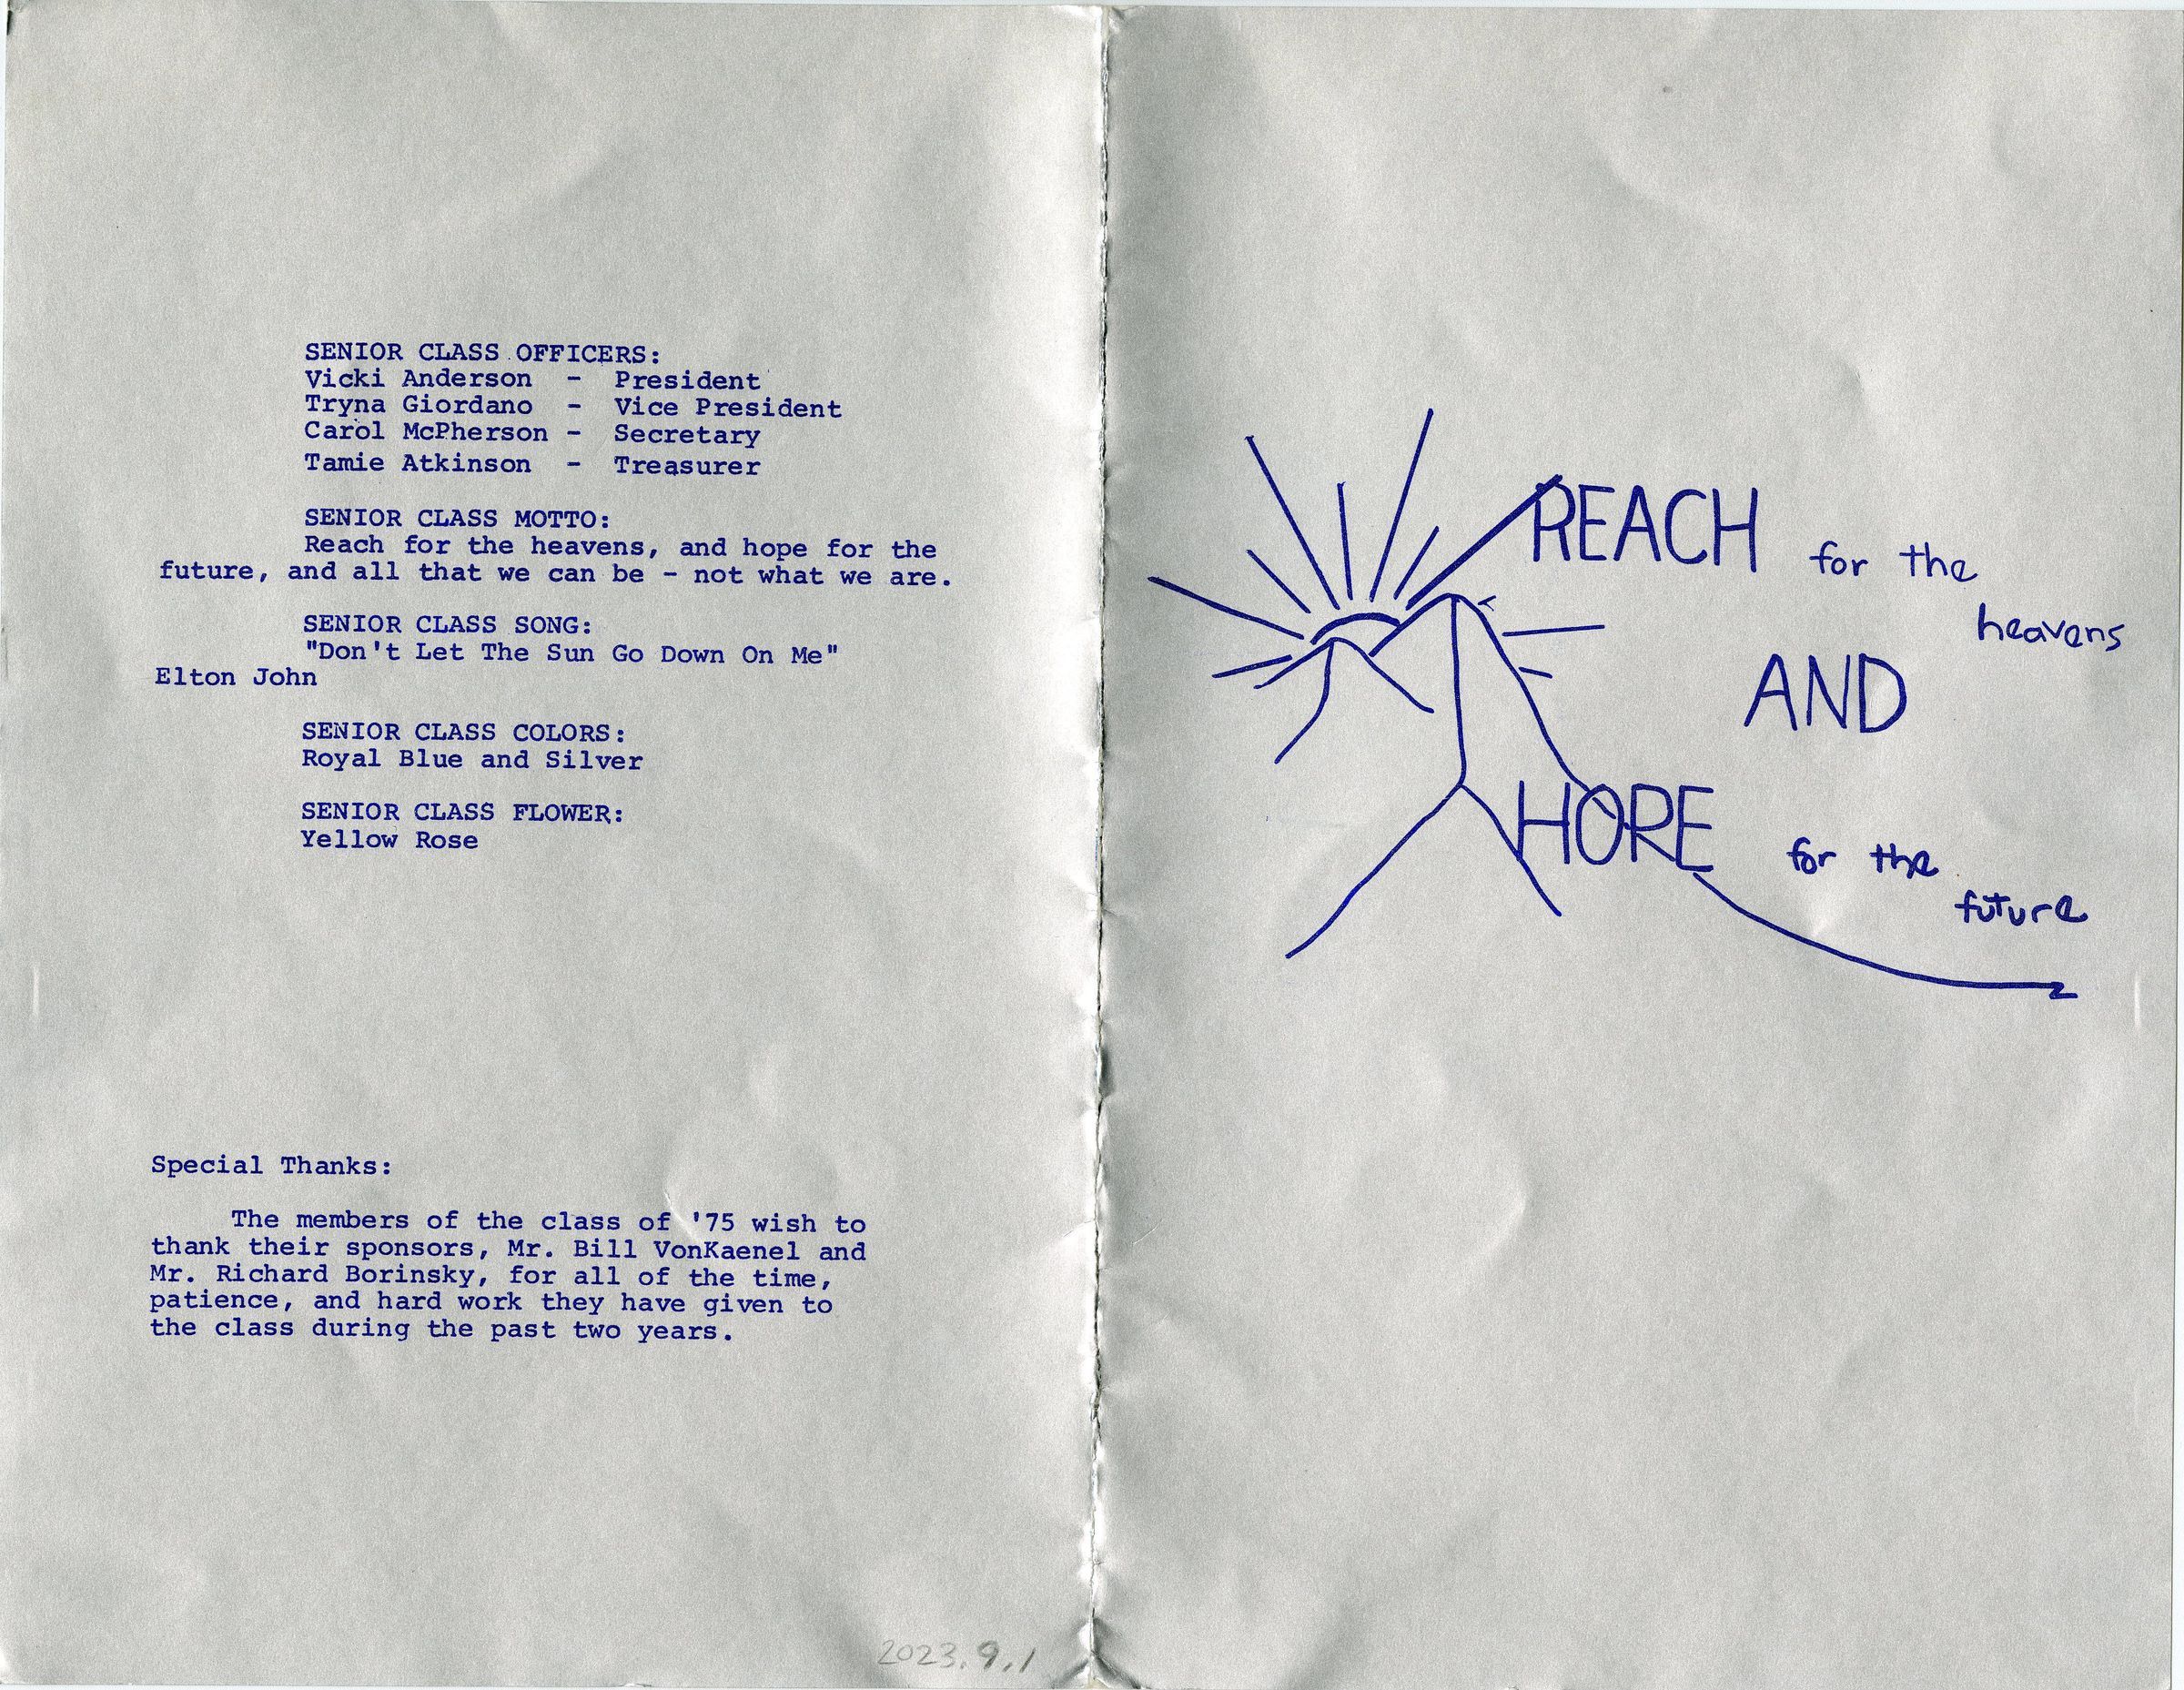 SENIOR CLASS OFFICERS:
Vicki Anderson - President
Tryna Giordano - Vice President
Carol McPherson - Secretary
Tamie Atkinson - Treasurer
SENIOR CLASS MOTTO:
Reach for the heavens, and hope for the
future, and all that we can be - not what we are.
SENIOR CLASS SONG:
"Don't Let The Sun Go Down On Me"
Elton John
SENIOR CLASS COLORS:
Royal Blue and Silver
SENIOR CLASS FLOWER:
Yellow Rose
Special Thanks:
The members of the class of '75 wish to
thank their sponsors, Mr. Bill VonKaenel and
Mr. Richard Borinsky, for all of the time,
patience, and hard work they have given to
the class during the past two years.
2023.9.1
REACH for the
heavens
AND
HOPE for the
future